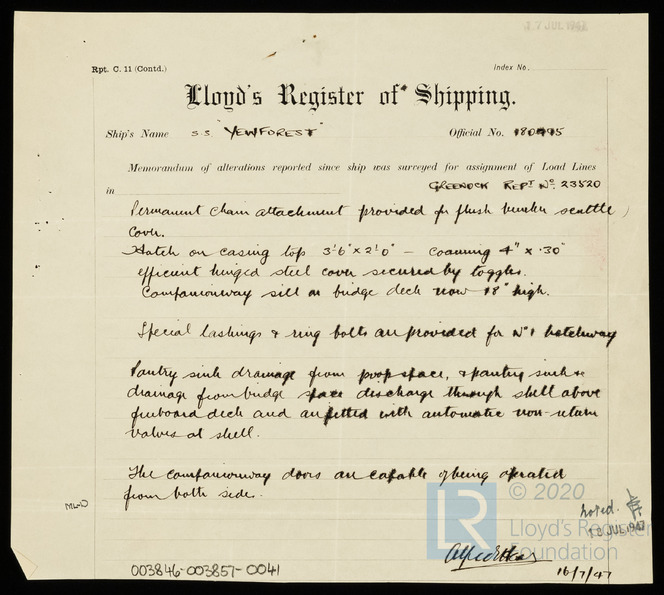 17 JUL 1947
Rpt. C. 11 (Contd.)
Index No.
Lloyd's Register of Shipping.
Ship's Name S.S. "YEWFOREST"
Official No. 180995
Memorandum of alterations reported since ship was surveyed for assignment of Load Lines
in GREENOCK REPT No. 23520
Permanent chain attachment provided for flush bunker scuttle
cover.
Hatch on casing top 3'6" x 2'0" - coaming 4" x .30"
efficient hinged steel cover secured by toggles.
Companionway sill on bridge deck now 18" high.
Special lashings & ring bolts are provided for No 1 hatchway
Pantry sink drainage from poop space, & pantry sink &
drainage from bridge space discharge through shell above
freeboard deck and are fitted with automatic non-return
valves at shell.
The companionway doors are capable of being operated
from both sides.
noted.
18 JUL 1947
16/7/47
003846-003857-0041
LR © 2020
Lloyd's Register
Foundation